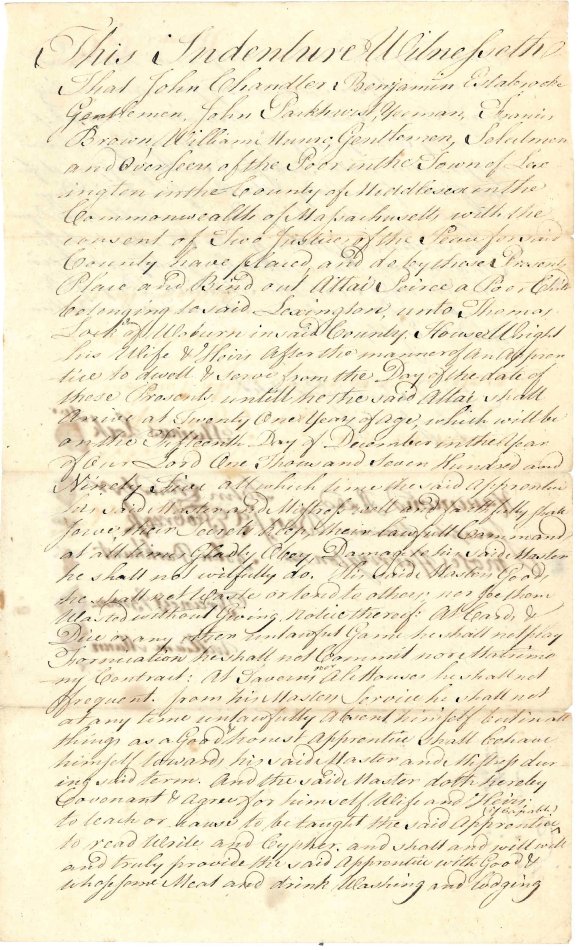 This Indenture Witnesseth
That John Chandler Benjamin Estabrooke
Gentlemen, John Parkhurst, Yeoman, Francis
Brown, William Munro, Gentlemen, Selectmen
and Overseers of the Poor in the Town of Lex
ington in the County of Middlesex in the
Commonwealth of Massachusetts with the
consent of Two Justices of the Peace for said
County have placed, and do by these Presents
Place and Bind out Attai Peirce a Poor Child
belonging to said Lexington, unto Thomas
Lock of Woburn in said County, House Wright
his Wife & Heirs After the manner of An Appren
tice to dwell & serve from the Day of the date of
these Presents untill he the said Attai shall
Arrive at Twenty One Years of age, which will be
on the Fifteenth Day of December in the Year
of Our Lord One Thousand Seven Hundred and
Ninety at which time the said Apprentice
his said Master and Mistress well and faithfully shall
Serve their Secrets keep their lawfull Command
at all times Gladly Obey, Damage to his said Master
he shall not wilfully do. His said Masters Goods
he shall not Waste or lend to others, nor see them
Wasted without Giving Notice thereof: At Cards &
Dice or any other unlawful Game he shall not play
Fornication he shall not Committ nor Matrimo
ny Contract: At Taverns or Alehouses he shall not
frequent. from his Masters Service he shall not
at any time unlawfully Absent himself but in all
things as a Good & honest Apprentice shall behave
himself toward his said Master and Mistress dur
ing said term. And the said Master doth hereby
Covenant & Agree for himself Wife and Heirs:
to teach or cause to be taught the said Apprentice (if capable)
to read Write and Cypher. and shall and will well
and truly provide the said Apprentice with Good &
wholesome Meat and drink Washing and lodging